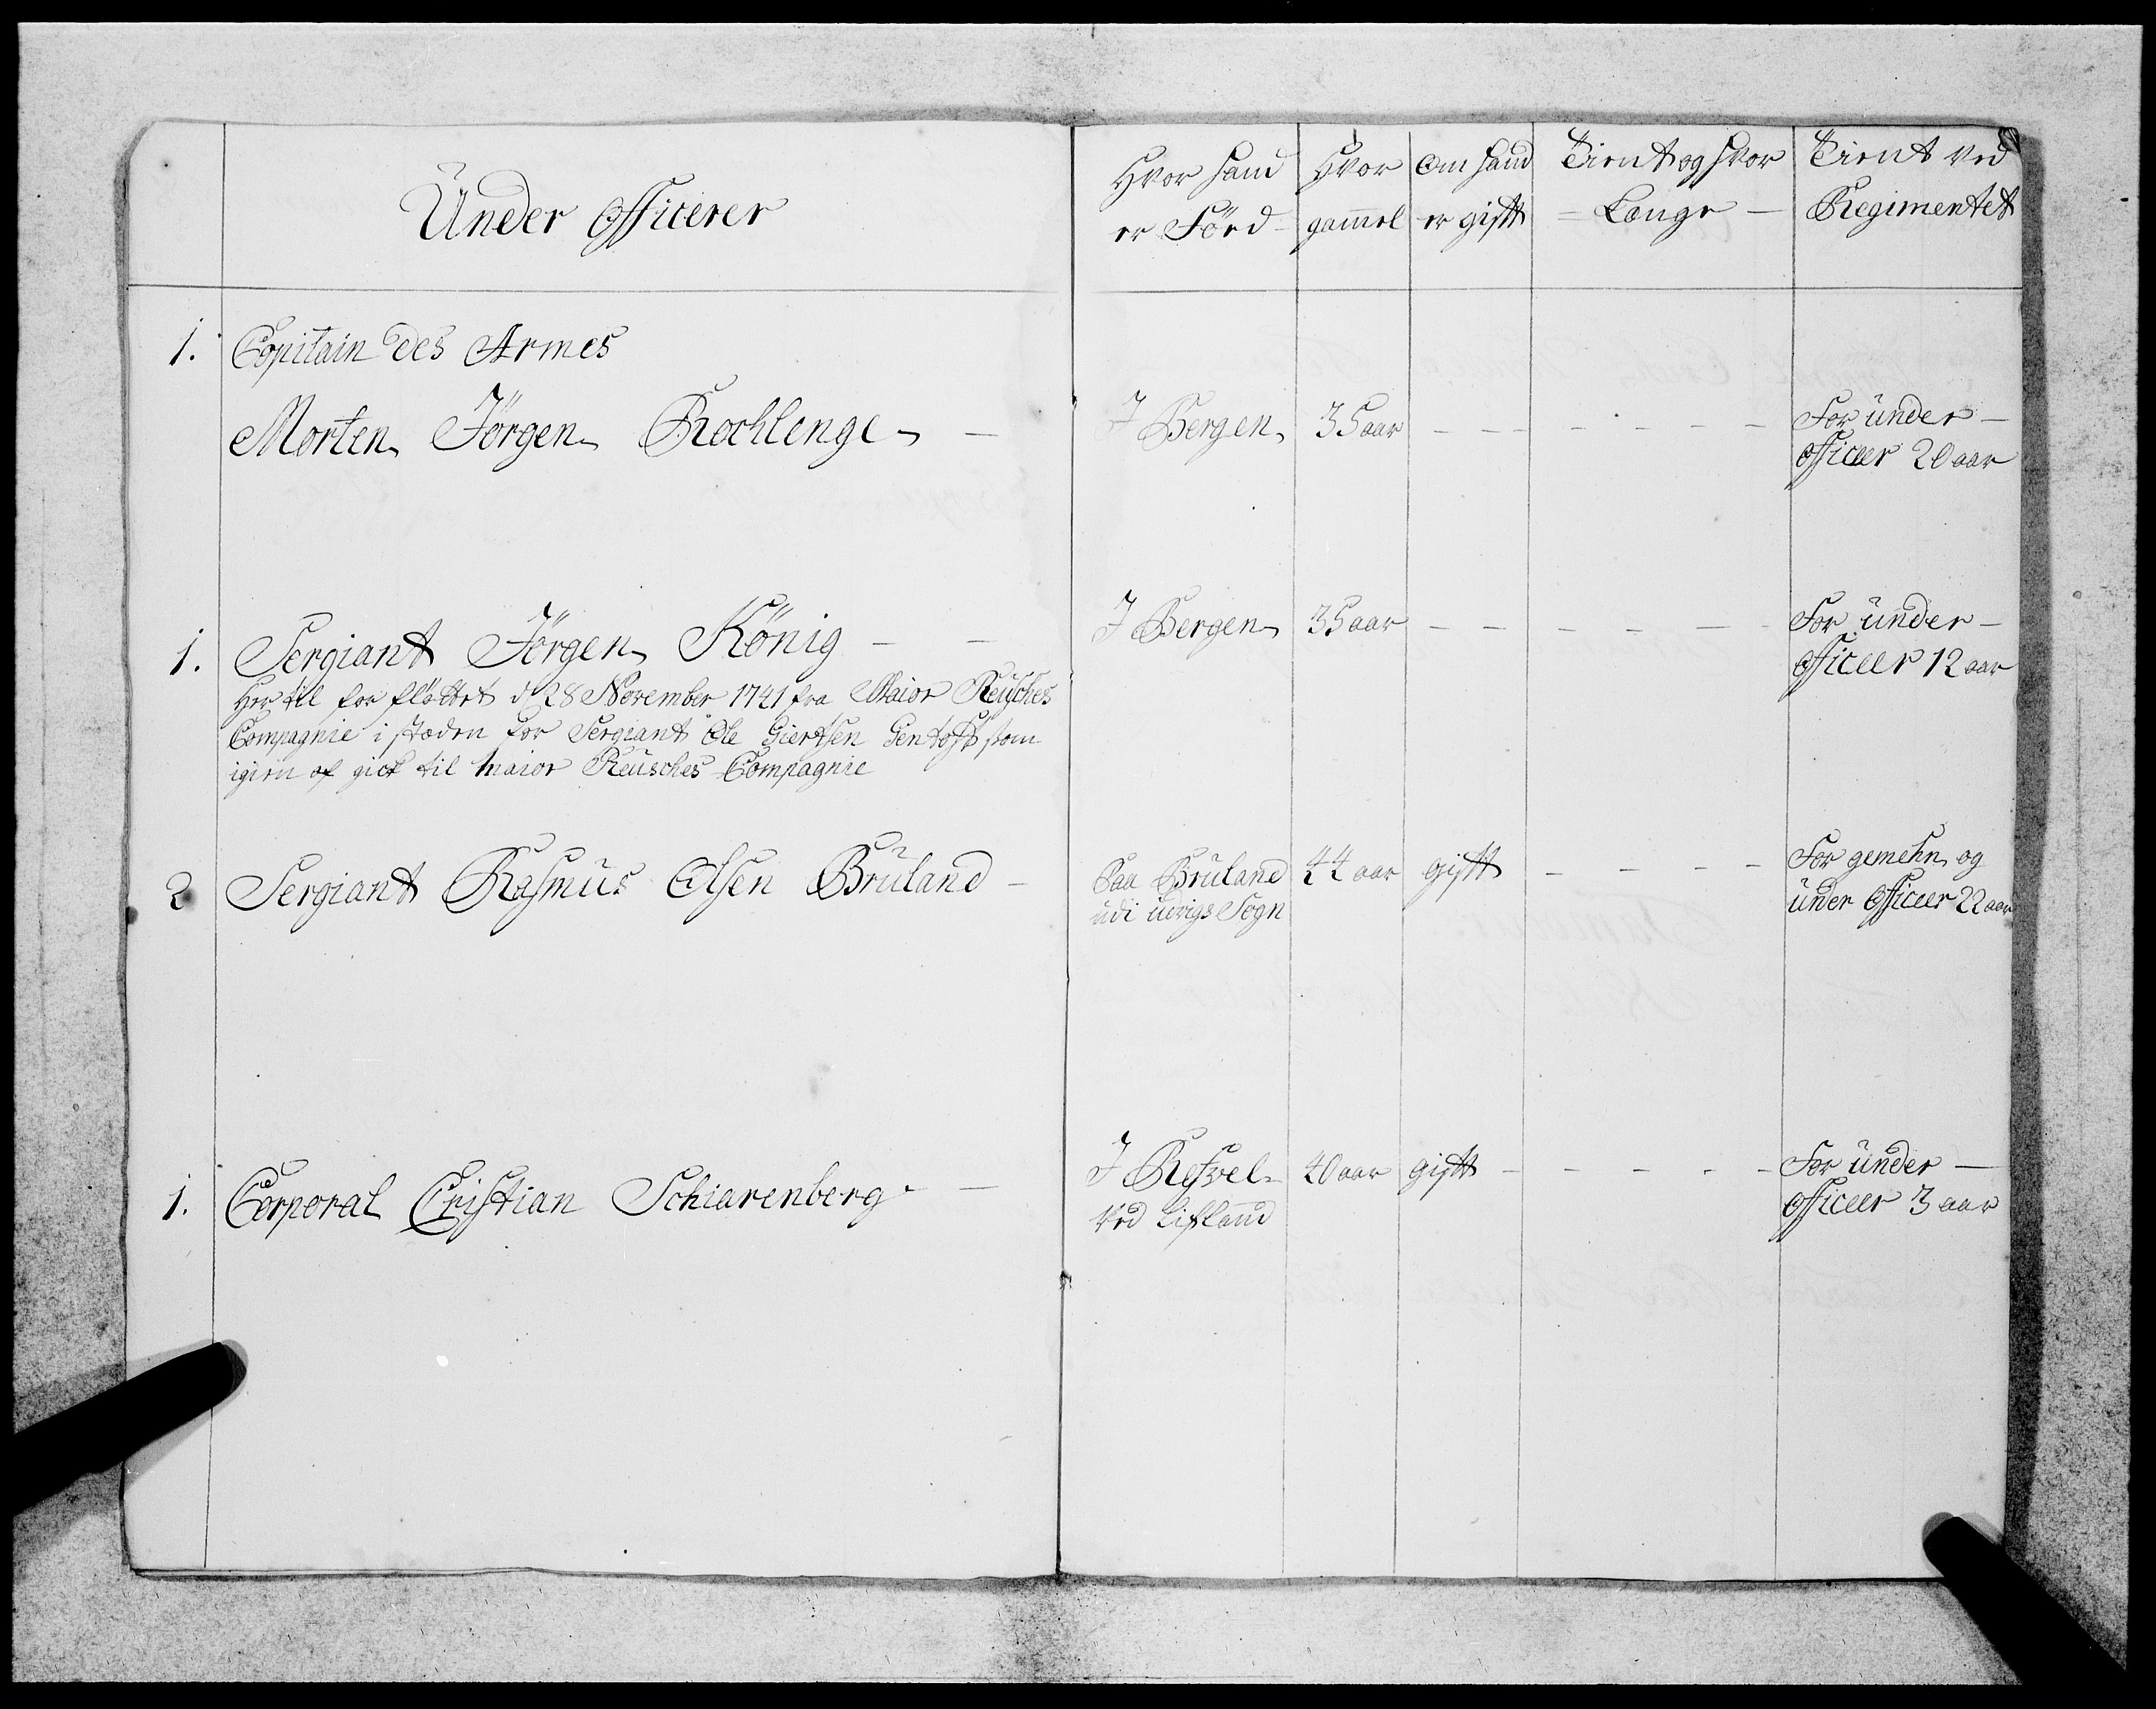 Ünder Officerer
Hvor hand
er Förd
Hvor
gammel
om hand
er gift
Tient og hvor
Lange
Tient ved
Regimentet
1. Capitain des Armes
Morten Jörgen Rochlenge
J Bergen 35 aar
For ünder
officeer 20 aar
1. Sergiant Jörgen König
J Bergen 35 aar
For ünder
officeer 12 aar
Her til for flöttet d 28 November 1741 fra Maior Reusches
Compagnie i stæden for Sergiant Ole Giertsen Gentoft som
igien af gick til Maior Reusches Compagnie
2 Sergiant Rasmus Olsen Brüland
Paa Brüland
udi Sogn
44 aar gift
For gemehn og
ünder officeer 22 aar
1. Corporal Cristian Schiarenberg
J Refvel
ved Lifland
40 aar gift
For ünder
officeer 3 aar